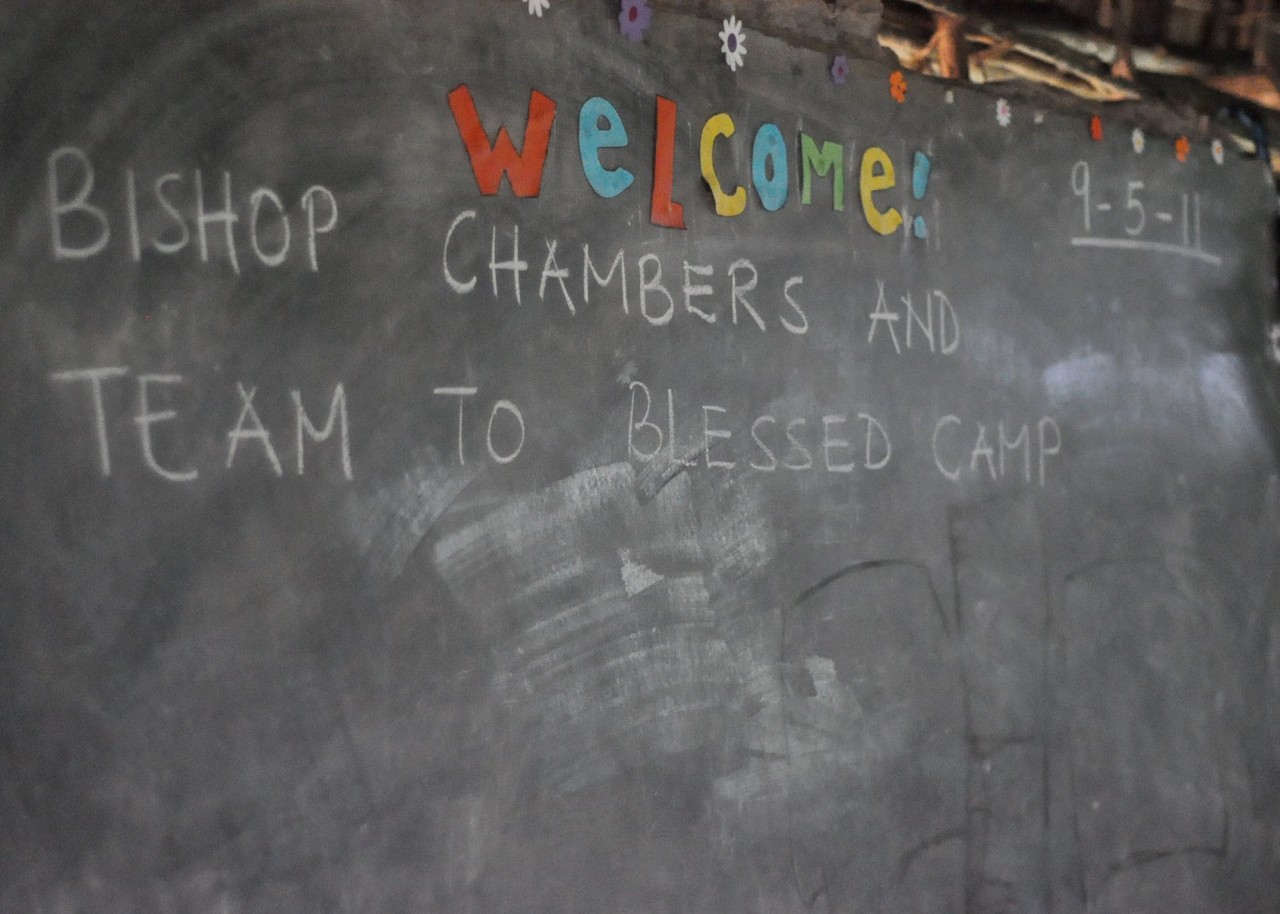 WeLCOMe!
9-5-11
BISHOP CHAMBERS AND
TEAM TO BLESSED CAMP